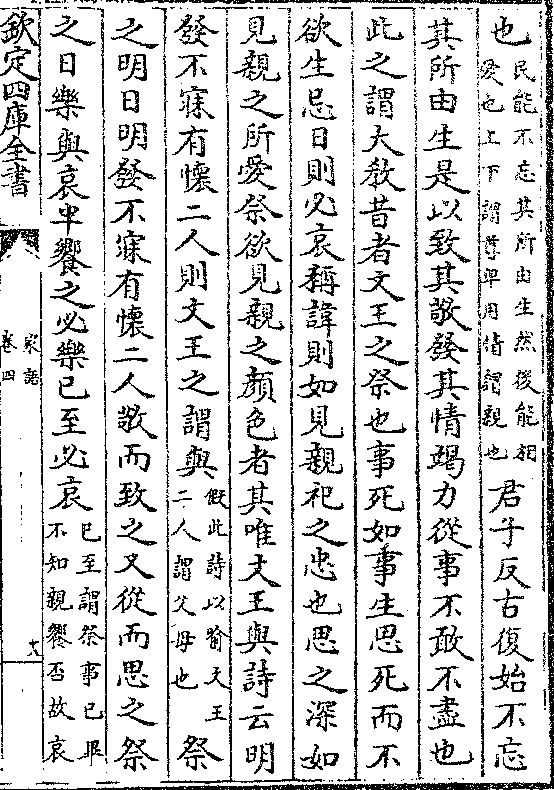 也民能不忘其所由生然後能相
愛也上下謂尊卑用情謂親也君子反古復始不忘
其所由生是以致其敬發其情竭力從事不敢不盡也
此之謂大教昔者文王之祭也事死如事生思死而不
欲生忌日則必哀稱諱則如見親祀之忠也思之深如
見親之所愛祭欲見親之顏色者其唯文王與詩云明
發不寐有懷二人則文王之謂與假此詩以喻文王
二人謂父母也祭
之明日明發不寐有懷二人敬而致之又從而思之祭
之日樂與哀半饗之必樂已至必哀已至謂祭事已畢
不知親饗否故哀
欽定四庫全書
家語
卷四
十八